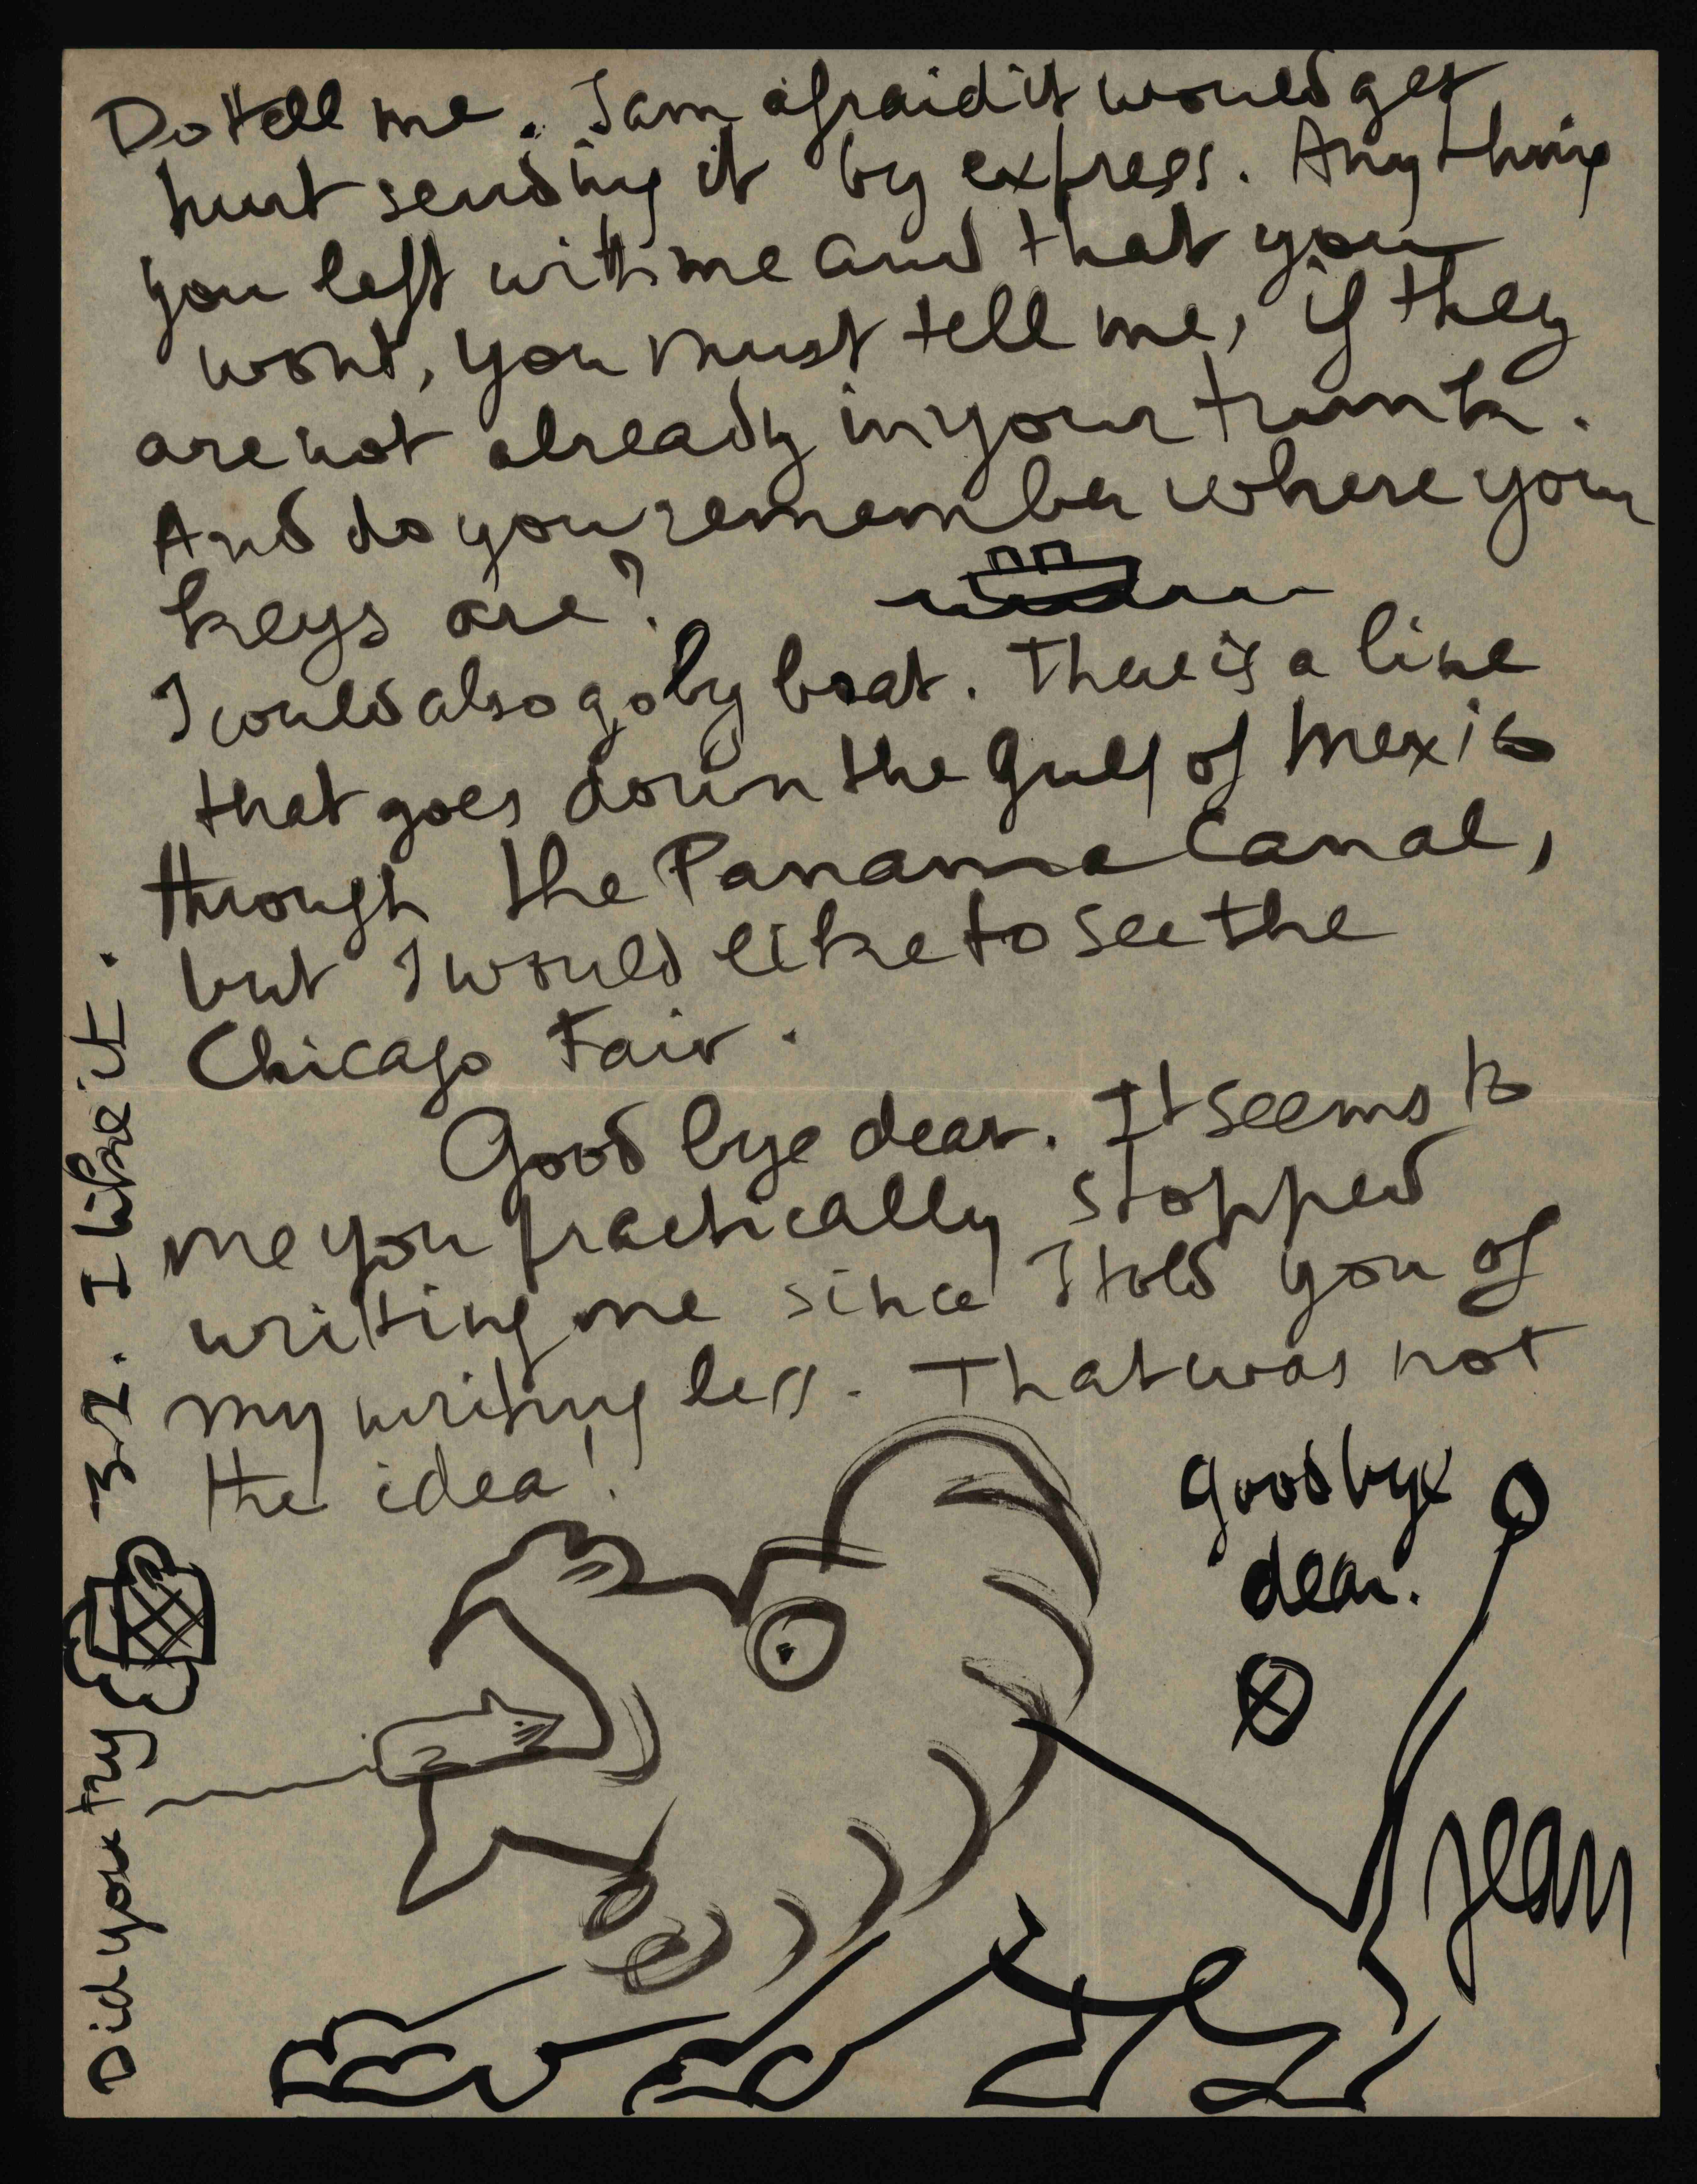 Do tell me. I am afraid it would get
hurt sending it by express. Anything
you left with me and that you
wont, you must tell me, if they
are not already in your trunk.
And do you remember where your
keys are?
I could also go by boat. There is a line
that goes down the Gulf of Mexico
through the Panama Canal,
but I would like to see the
Chicago Fair.
Good bye dear. It seems to
me you practically stopped
writing me since I told you of
my writing less. That was not
the idea!
Good bye
dear.
Jean
Did you try 3.2. I like it.